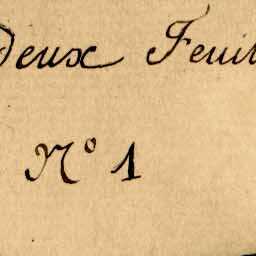 Deux Feuil
Nº 1